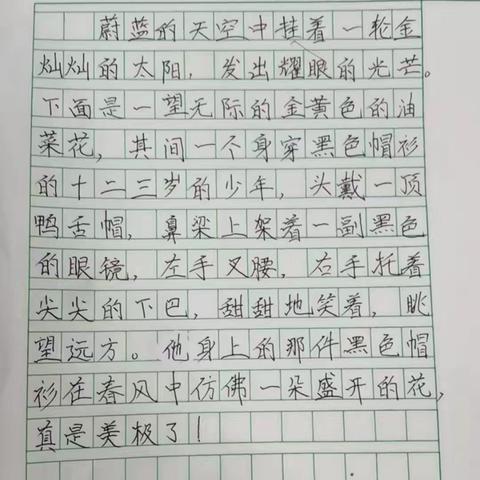 蔚蓝的天空中挂着一轮金
灿灿的太阳，发出耀眼的光芒。
下面是一望无际的金黄色的油
菜花，其间一个身穿黑色帽衫
的十二三岁的少年，头戴一顶
鸭舌帽，鼻梁上架着一副黑色
的眼镜，左手叉腰，右手托着
尖尖的下巴，甜甜地笑着，眺
望远方。他身上的那件黑色帽
衫在春风中仿佛一朵盛开的花，
真是美极了！